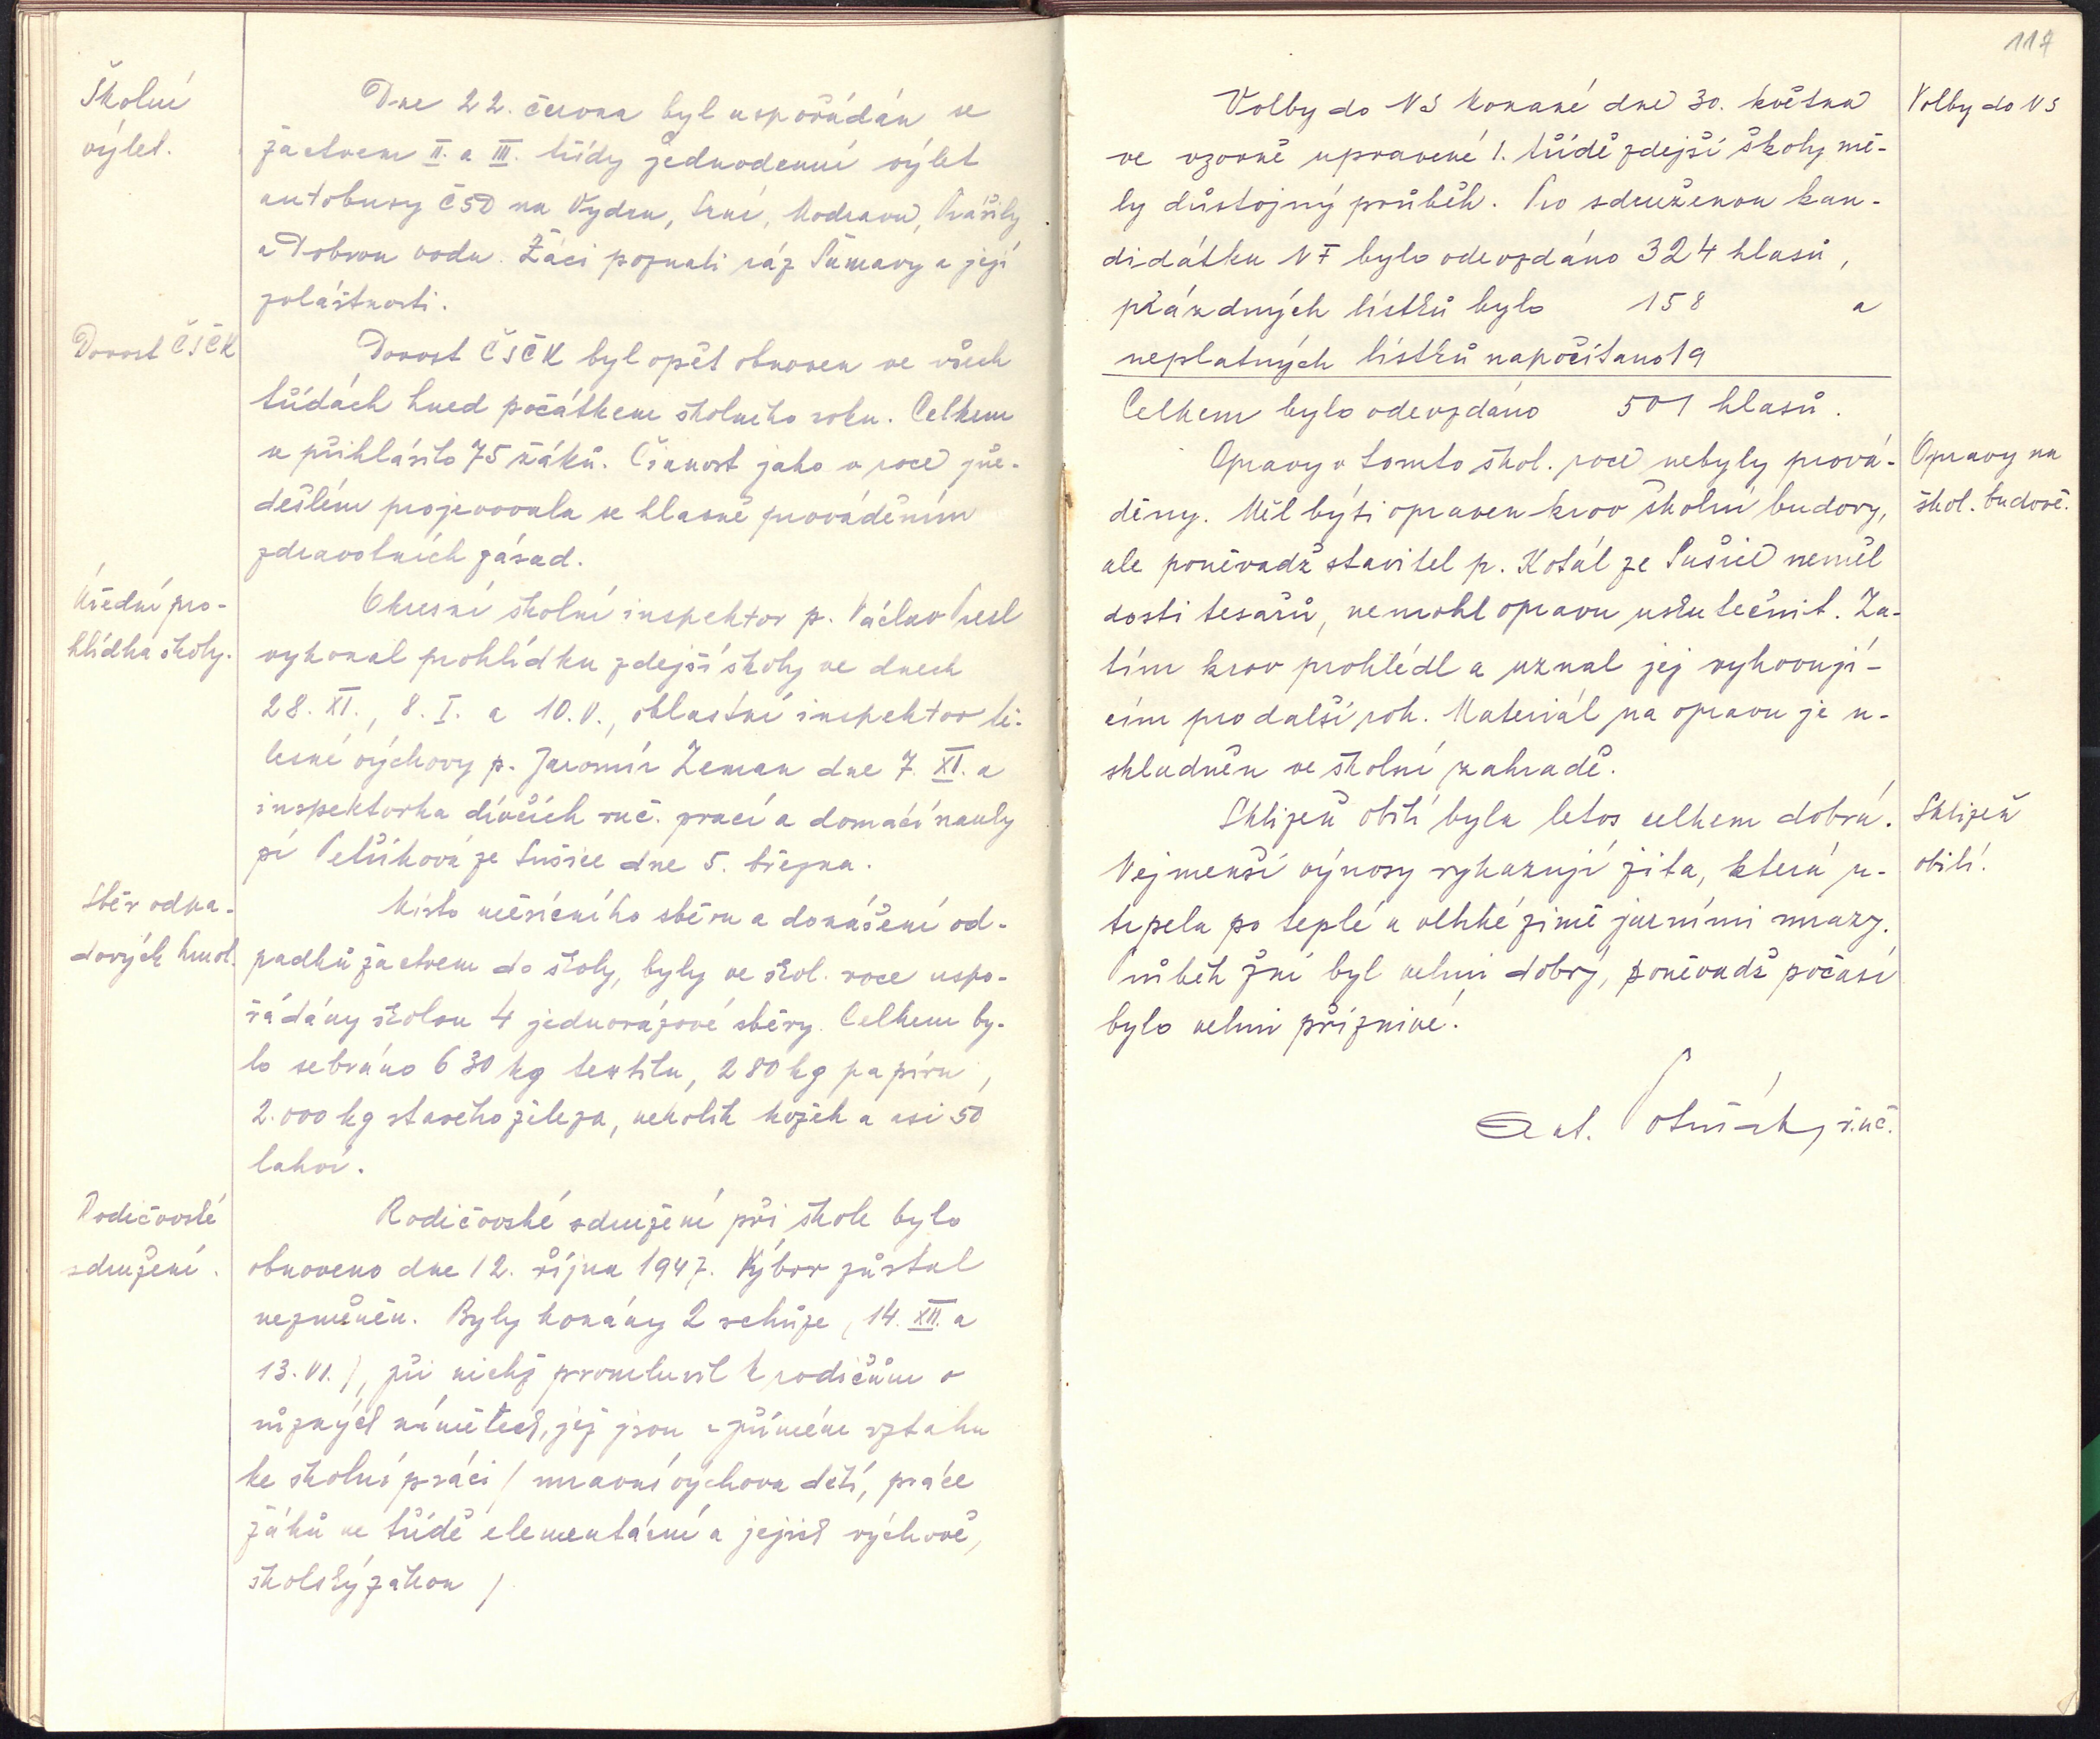 Školní
výlet.
Dne 22. června byl uspořádán se
žactvem II. a III. třídy jednodenní výlet
autobusy ČSD na Vydru, Srní, Modravu, Prášily
a Dobrou vodu. Žáci poznali ráz Šumavy a její
zvláštnosti.
Dorost ČSČK
Dorost ČSČK byl opět obnoven ve všech
třídách hned počátkem školního roku. Celkem
se přihlásilo 75 žáků. Činnost jako v roce pře-
dešlém projevovala se hlavně prováděním
zdravotních zásad.
Úřední pro-
hlídka školy.
Okresní školní inspektor p. Václav Presl
vykonal prohlídku zdejší školy ve dnech
28. XI., 8. I. a 10. V., oblastní inspektor tě-
lesné výchovy p. Jaromír Zeman dne 7. XI. a
inspektorka dívčích ruč. prací a domácí nauky
pí Petříková ze Sušice dne 5. března.
Sběr odpa-
dových hmot.
Místo měsíčního sběru a donášení od-
padků žactvem do školy, byly ve škol. roce uspo-
řádány školou 4 jednorázové sběry. Celkem by-
lo sebráno 630 kg textilu, 280 kg papíru,
2.000 kg starého železa, několik kožek a asi 50
lahví.
Rodičovské
sdružení.
Rodičovské sdružení při škole bylo
obnoveno dne 12. října 1947. Výbor zůstal
nezměněn. Byly konány 2 schůze (14. XII. a
13. VI.), při nichž promluvil k rodičům o
různých námětech, jež jsou v přímém vztahu
ke školní práci / mravní výchova dětí, práce
žáků ve třídě elementární a jejich výchově,
školský zákon /
117
Volby do NS konané dne 30. května
ve vzorně upravené 1. třídě zdejší školy mě-
ly důstojný průběh. Pro sdruženou kan-
didátku NF bylo odevzdáno 324 hlasů,
prázdných lístků bylo 158 a
neplatných lístků napočítano 19
Celkem bylo odevzdáno 501 hlasů.
Volby do NS
Opravy v tomto škol. roce nebyly prová-
děny. Měl býti opraven krov školní budovy,
ale poněvadž stavitel p. Kotál ze Sušice neměl
dosti tesařů, nemohl opravu uskutečnit. Za-
tím krov prohlédl a uznal jej vyhovují-
cím pro další rok. Materiál na opravu je u-
skladněn ve školní zahradě.
Opravy na
škol. budově.
Sklizeň obilí byla letos celkem dobrá.
Nejmenší výnosy vykazují žita, která u-
trpěla po teplé a vlhké zimě jarními mrazy.
Průběh žní byl velmi dobrý, poněvadž počasí
bylo velmi příznivé.
Sklizeň
obilí.
Ant. ř. uč.